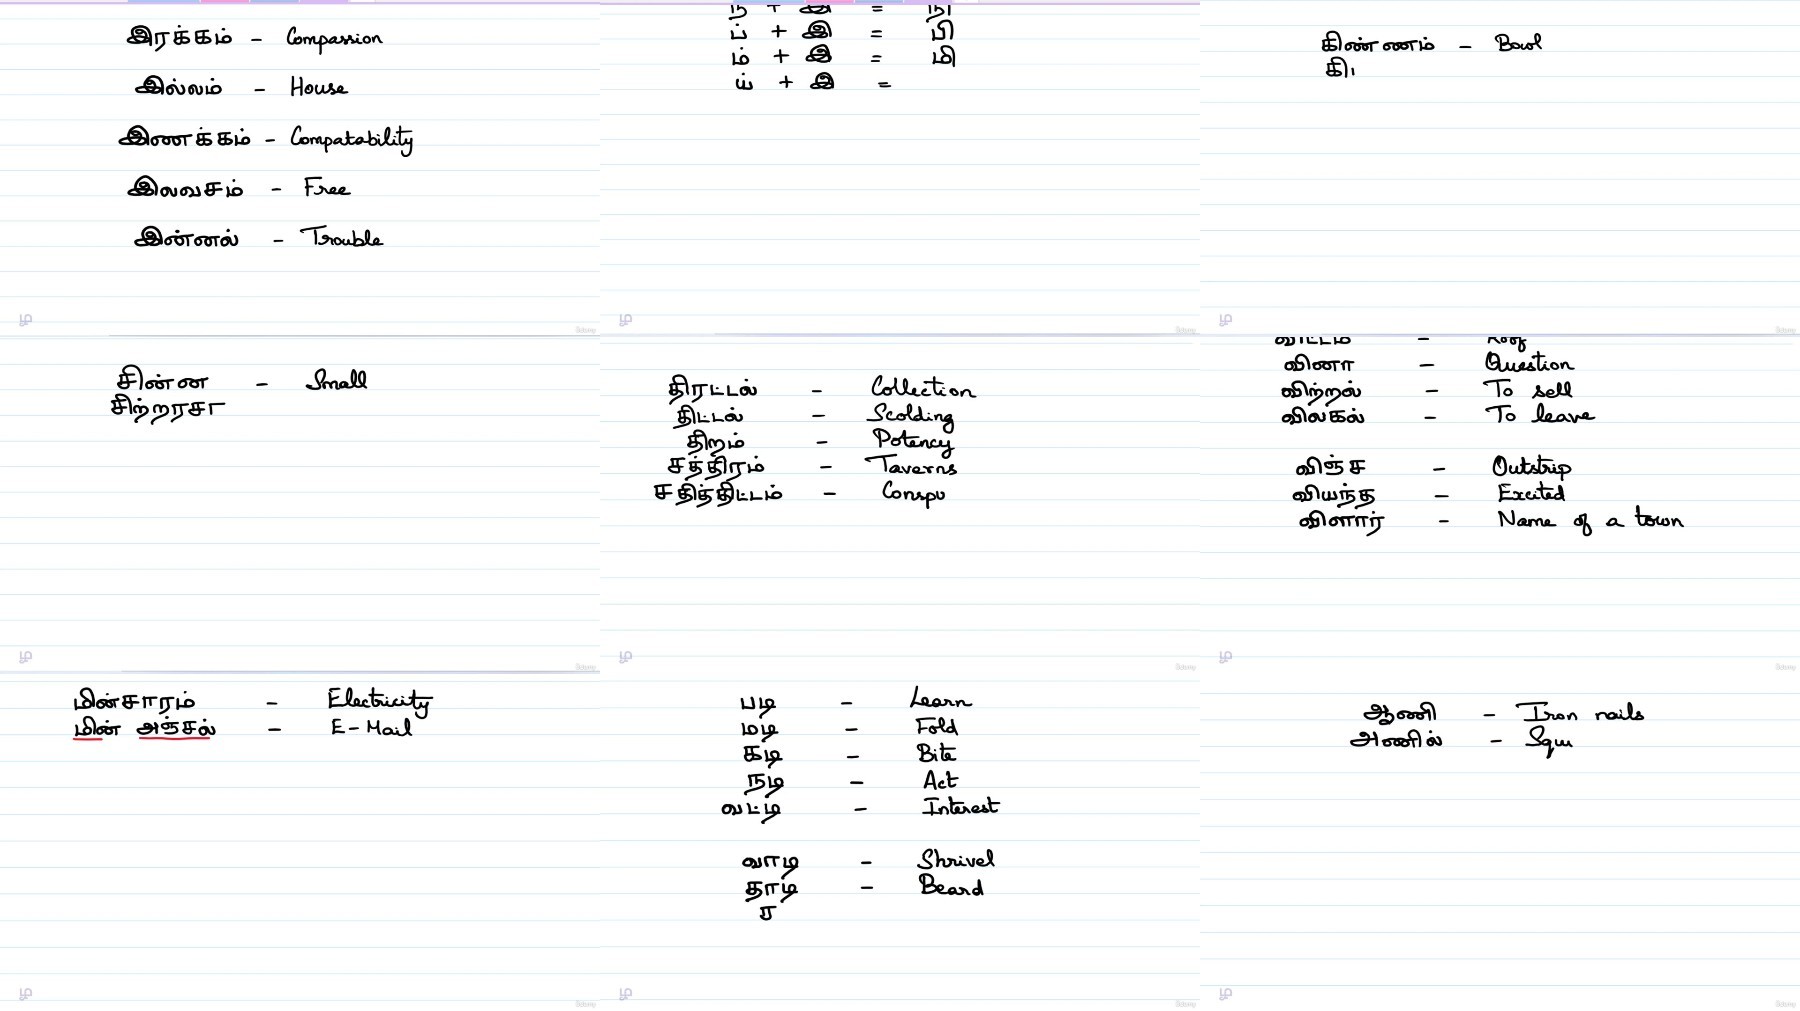 இரக்கம் - Compassion
இல்லம் - House
இணக்கம் - Compatability
இலவசம் - Free
இன்னல் - Trouble
ந் + இ = நி
ப் + இ = பி
ம் + இ = மி
ய் + இ =
கிண்ணம் - Bowl
சின்ன - Small
சிற்றரசா
திரட்டல் - Collection
திட்டல் - Scolding
திறம் - Potency
சத்திரம் - Taverns
சதித்திட்டம் - Conspu
விட்டம் - Roof
வினா - Question
விற்றல் - To sell
விலகல் - To leave
விஞ்ச - Outstrip
வியந்த - Excited
விளார் - Name of a town
மின்சாரம் - Electricity
மின் அஞ்சல் - E-Mail
படி - Learn
மடி - Fold
கடி - Bite
நடி - Act
வட்டி - Interest
வாடி - Shrivel
தாடி - Beard
ஆணி - Iron nails
அணில் - Squ